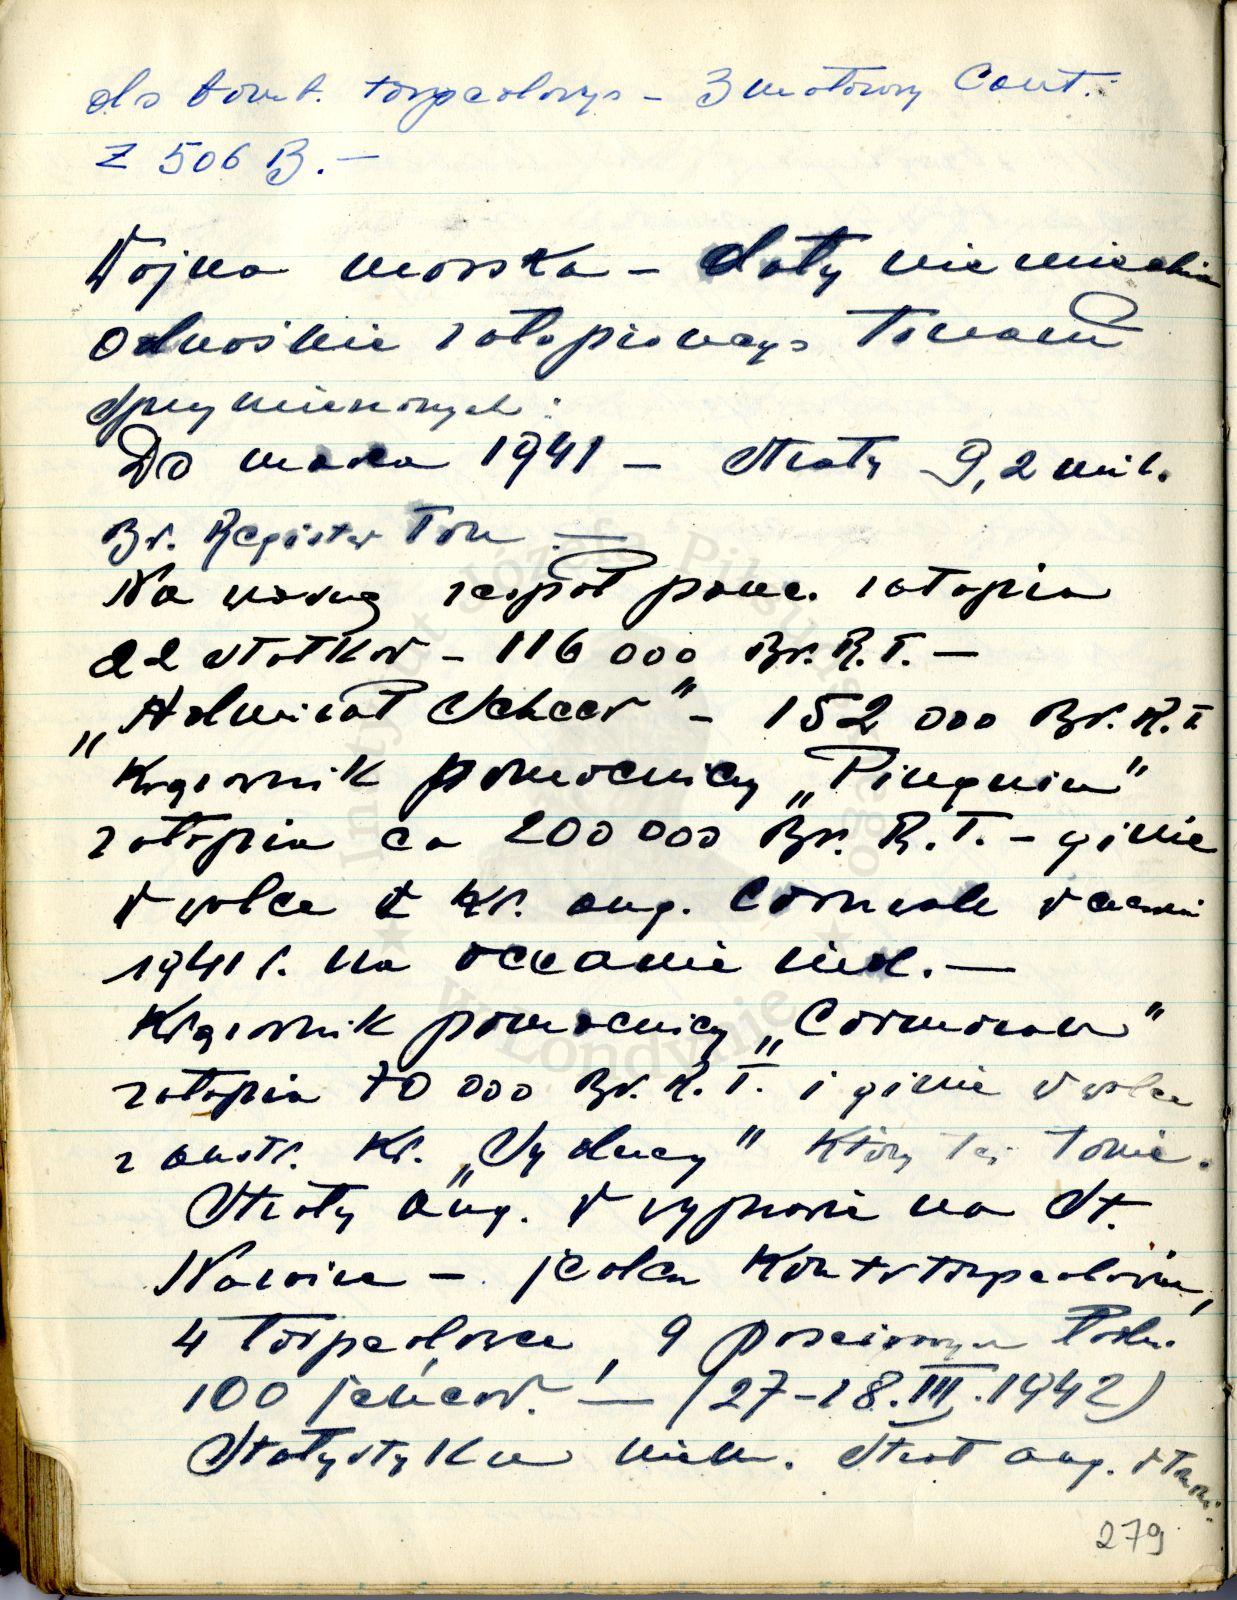 do bomb. torpedowys – 3 motorowy Cant.
Z 506 B. –
Wojna morska – daty niemieckie
odnośnie zatopionego tonażu
sprzymierzonych:
Do marca 1941 – straty 9,2 mil.
Br. Register Ton –
Na wiosnę zespół panc. zatopia
22 statków – 116 000 Br. R.T. –
„Admirał Scheer” – 152 000 Br. R.T
Krążownik pomocniczy „Pinguin”
zatopia ca 200 000 Br. R.T. – ginie
w walce z kr. ang. Cornwale w czerwcu
1941 r. na oceanie ind. –
Krążownik pomocniczy „Cormoran”
zatopia 70 000 Br. R.T. i ginie w walce
z austr. kr. „Sydney” który też tonie.
Straty ang. w wyprawie na St.
Nazaire – jeden kontrtorpedowiec,
4 torpedowce, 9 pościgowych łodzi.
100 jeńców. – (27–28.III.1942)
Statystyka niem. strat ang.
279
Instytut Józefa Piłsudskiego
w Londynie